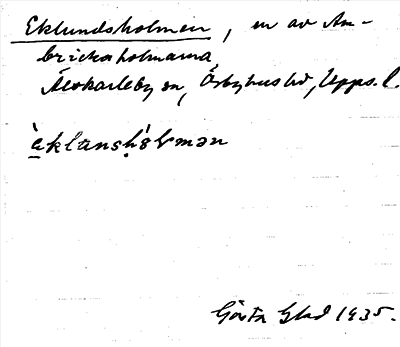 Eklundsholmen, en av Am-
brickaholmarna,
Älvkarleby sn, Örbyhus hd, Upps. l.
Gösta Glad 1935.